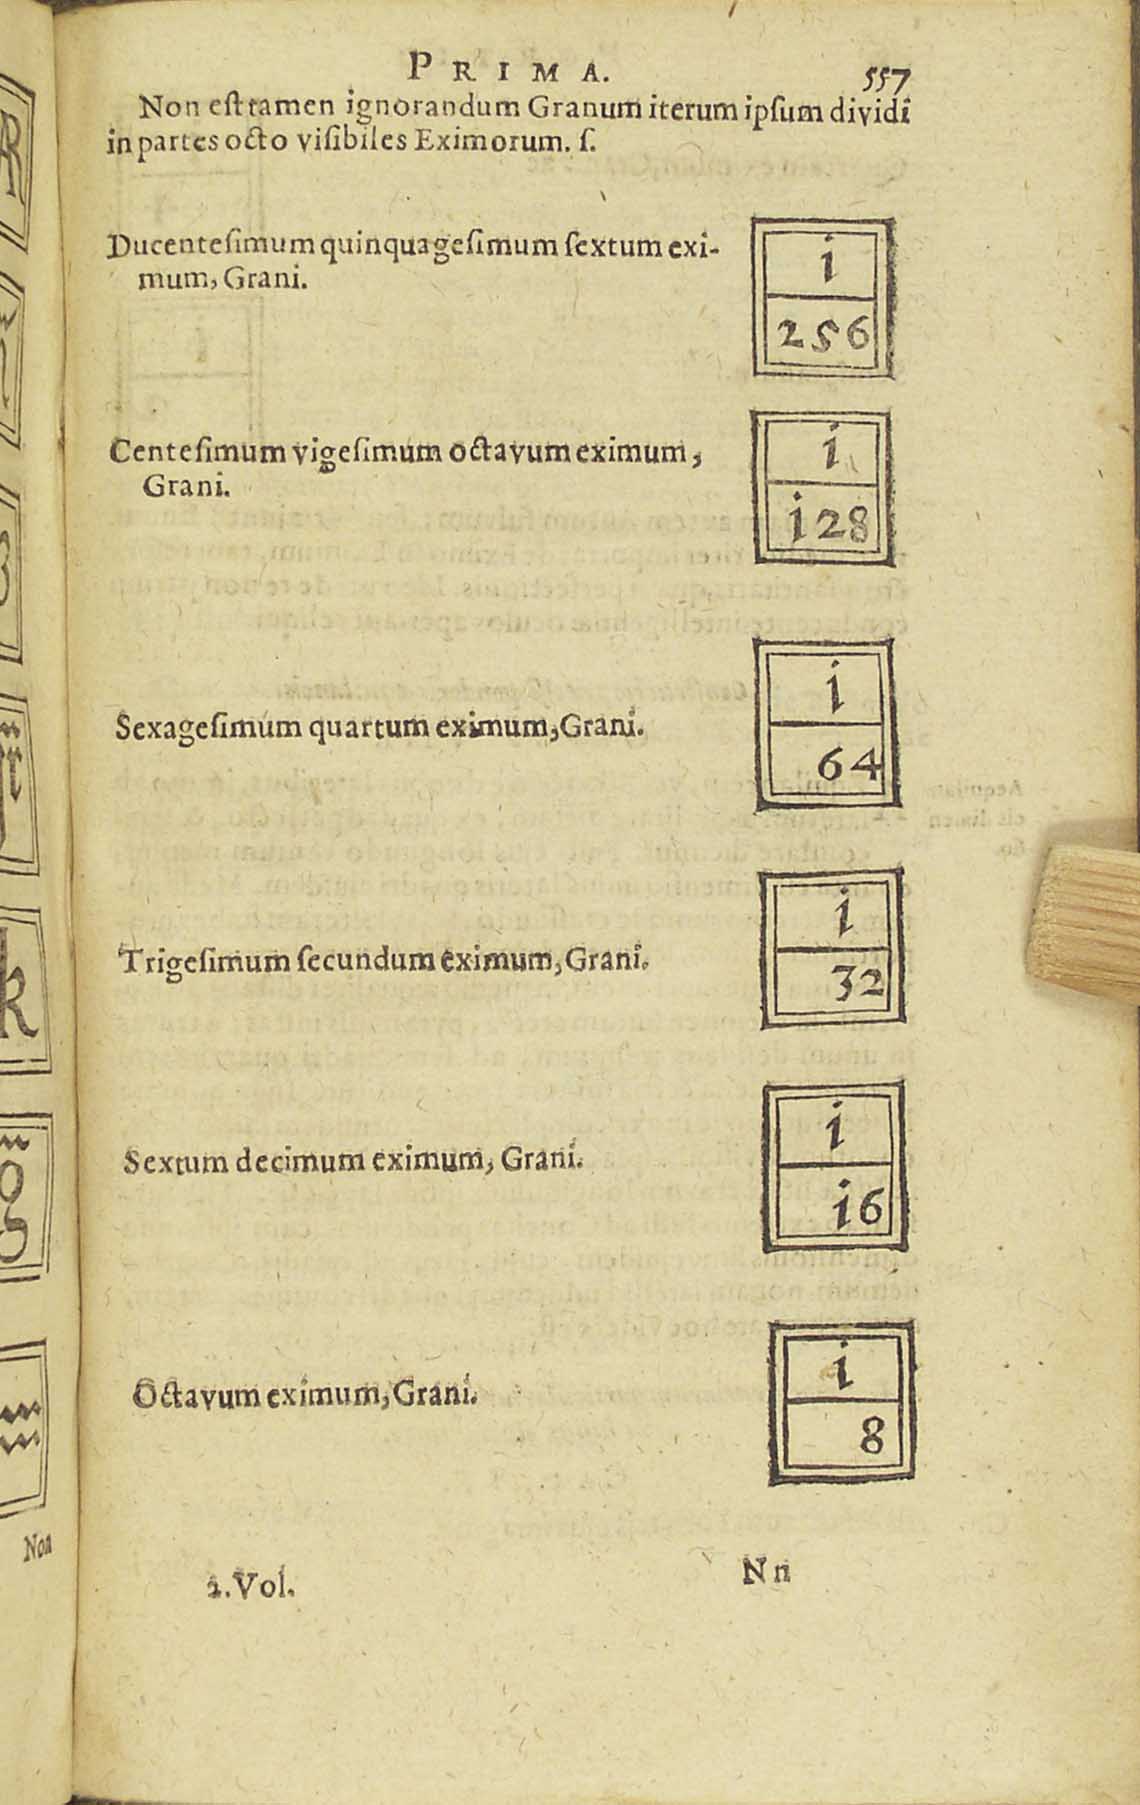 PRIMA. 557
Non est tamen ignorandum Granum iterum ipsum dividi
in partes octo visibiles Eximorum. s.
Ducentesimum quinquagesimum sextum exi-
mum, Grani.
i
256
Centesimum vigesimum octavum eximum,
Grani.
i
i28
Sexagesimum quartum eximum, Grani.
i
64
Trigesimum secundum eximum, Grani.
i
32
Sextum decimum eximum, Grani.
i
i6
Octavum eximum, Grani.
i
8
2. Vol. Nn
Non